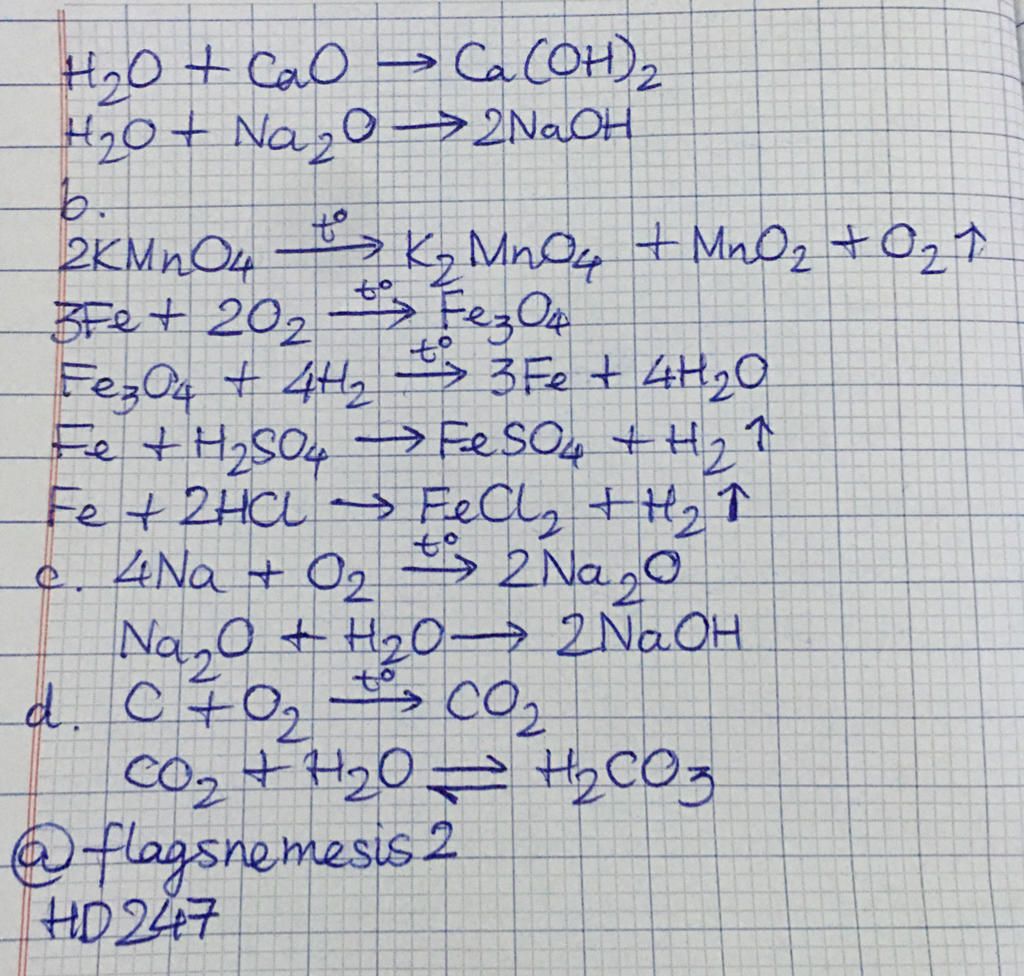 H₂O + CaO → Ca(OH)₂
H₂O + Na₂O → 2NaOH
b.
2KMnO₄ —t°→ K₂MnO₄ + MnO₂ + O₂↑
3Fe + 2O₂ —t°→ Fe₃O₄
Fe₃O₄ + 4H₂ —t°→ 3Fe + 4H₂O
Fe + H₂SO₄ → FeSO₄ + H₂↑
Fe + 2HCl → FeCl₂ + H₂↑
c. 4Na + O₂ —t°→ 2Na₂O
Na₂O + H₂O → 2NaOH
d. C + O₂ —t°→ CO₂
CO₂ + H₂O ⇌ H₂CO₃
@flagsnemesis2
HD247